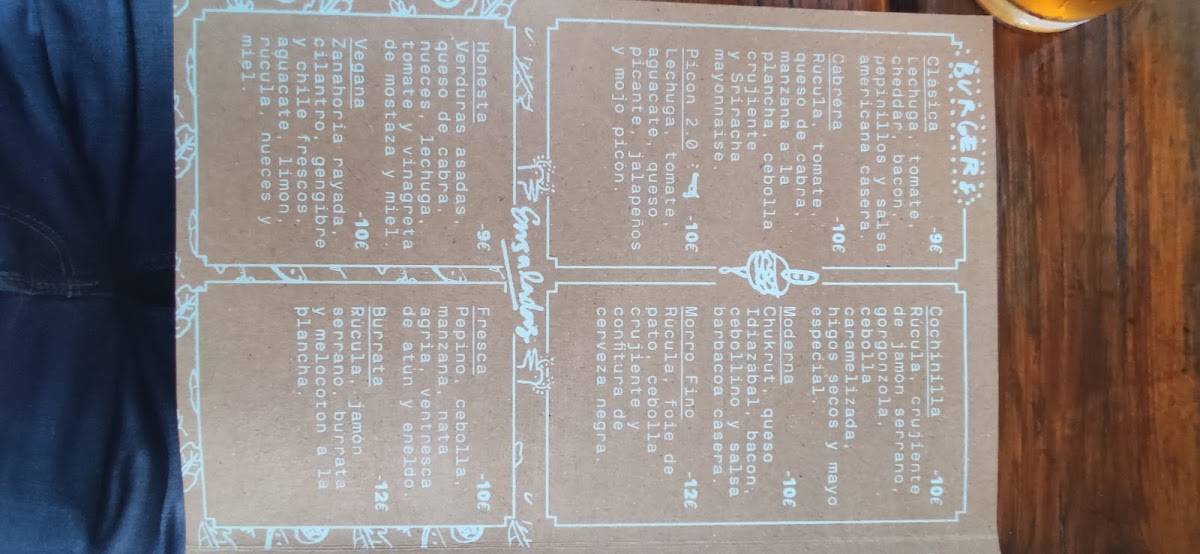 BURGERS
Clasica -9€
Lechuga, tomate,
cheddar, bacon,
pepinillos y salsa
americana casera.
Cabrera -10€
Rúcula, tomate,
queso de cabra,
manzana a la
plancha, cebolla
crujiente
y Sriracha
mayonnaise
Picon 2.0 -10€
Lechuga, tomate,
aguacate, queso
picante, jalapeños
y mojo picon.
Cochinilla -10€
Rúcula, crujiente
de jamón serrano,
gorgonzola,
cebolla
caramelizada,
higos secos y mayo
especial.
Moderna -10€
Chukrut, queso
Idiazábal, bacon,
cebollino y salsa
barbacoa casera.
Morro Fino -12€
Rúcula, foie de
pato, cebolla
crujiente y
confitura de
cerveza negra.
Ensaladas
Honesta -9€
Verduras asadas,
queso de cabra,
nueces, lechuga,
tomate y vinagreta
de mostaza y miel.
Vegana -10€
Zanahoria rayada,
cilantro, gengibre
y chile frescos,
aguacate, limón,
rúcula, nueces y
miel.
Fresca -10€
Pepino, cebolla,
manzana, nata
agria, ventresca
de atún y eneldo.
Burrata -12€
Rúcula, jamón
serrano, burrata
y melocoton a la
plancha.